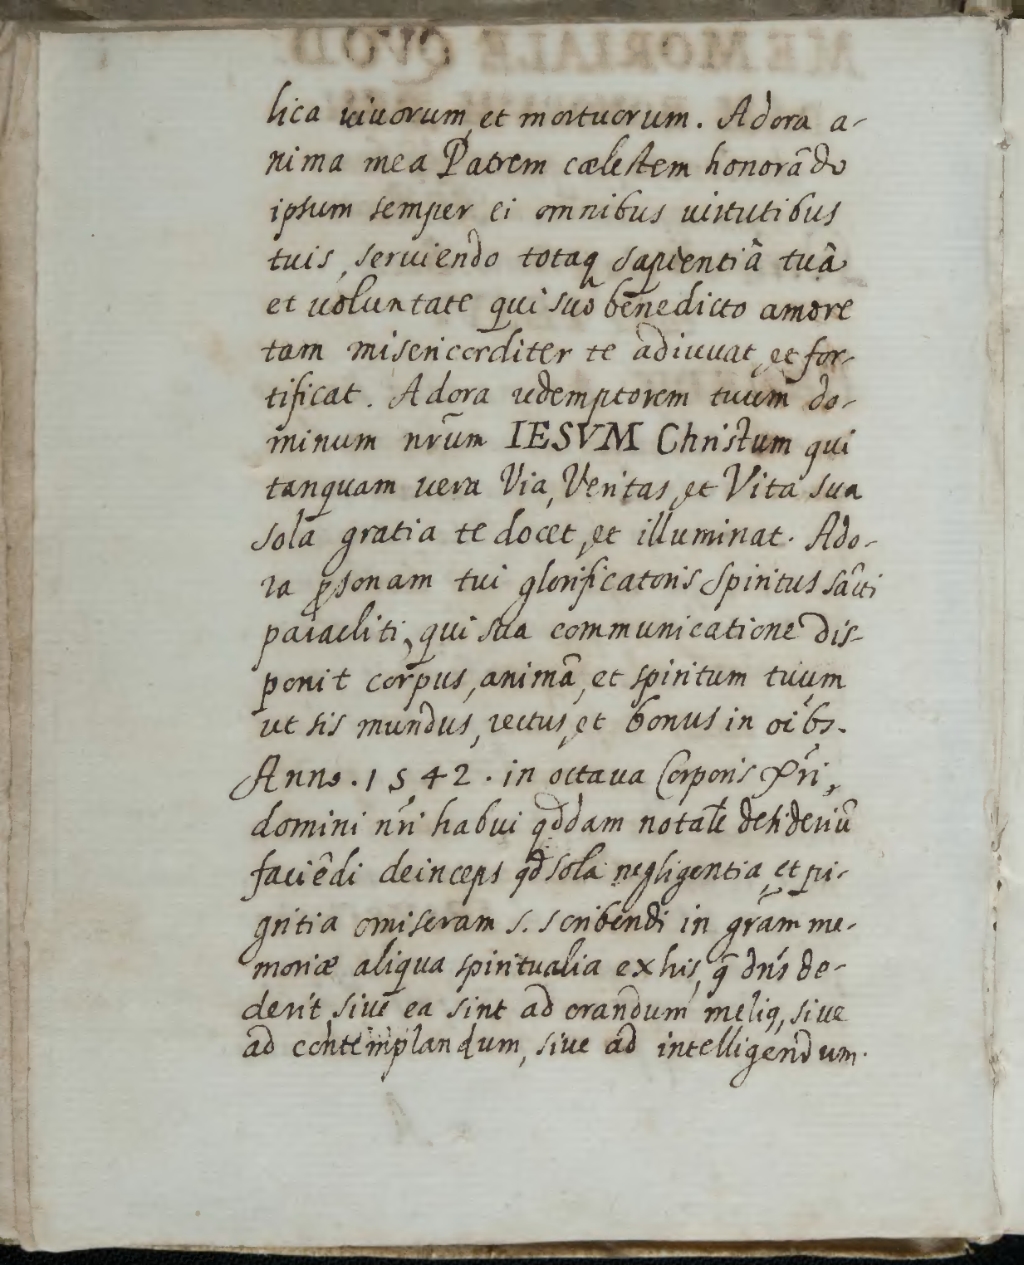 lica uiuorum, et mortuorum. Adora a-
nima mea Patrem cælestem honorãdo
ipsum semper ei omnibus uirtutibus
tuis, seruiendo totaq sapientiâ tuâ
et uoluntate qui suo benedicto amore
tam misericorditer te adiuuat, et for-
tificat. Adora redemptorem tuum do-
minum nr̃um IESVM Christum qui
tanquam uera Via, Veritas, et Vita sua
sola gratia te docet, et illuminat. Ado-
ra ꝑsonam tui glorificatoris Spiritus sãcti
paracliti, qui sua communicatione dis-
ponit corpus, animã, et spiritum tuum
ut sis mundus, rectus, et bonus in oĩbs.
Anno. 1542. in octaua Corporis Xr̃i,
domini nr̃i habui qddam notale desideriũ
faciẽdi deinceps qd sola negligentia, et pi-
gritia omiseram s. scribendi in gr̃am me-
moriæ aliqua spiritualia ex his, q̃ dñs de-
derit siue ea sint ad orandum meliq, siue
ad contemplandum, siue ad intelligendum.
MEMORIALE QVOD